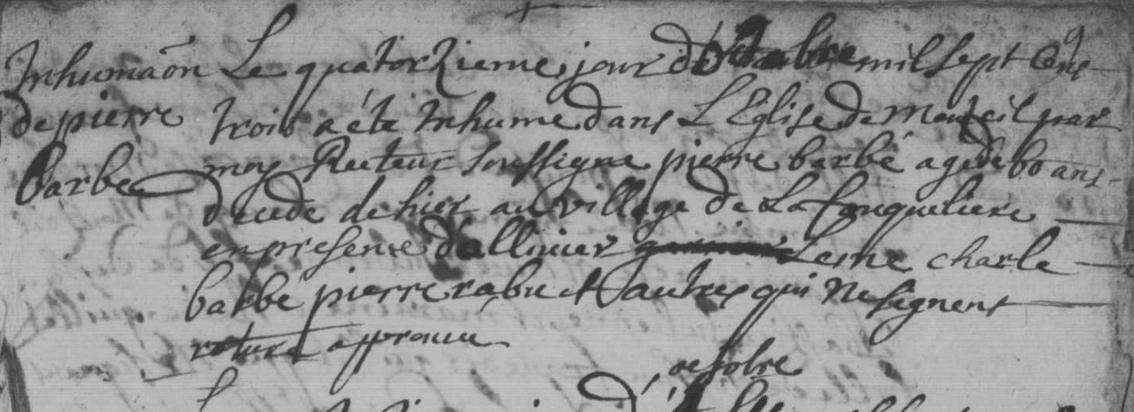 Inhumaõn
de pierre
barbe
Le quatorzieme jour d'octobre mil sept Cens
trois a été Inhume dans L'Eglise de Mouzeil par
moy Recteur soussigne pierre barbé agé de 60 ans
decede de hier au village de La fouqueliere
en presence d'allinier Lesne charle
barbé pierre rabu et autres qui ne signent
rature approuvé
octobre